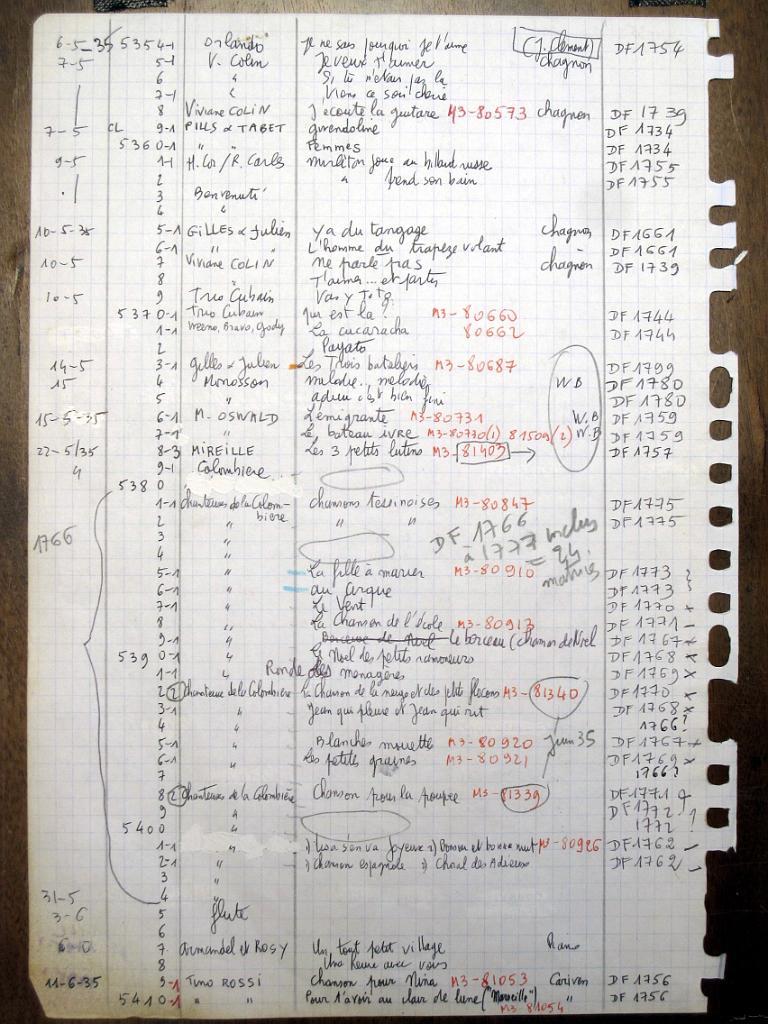 6-5-35 5354-1 Orlando Je ne sais pourquoi je t'aime (J. Clément) DF 1754
7-5 5-1 V. Colin Je veux t'aimer chagnon
6 " Si tu n'étais pas là
7-1 " Viens ce soir chérie
8 Viviane COLIN J'écoute la guitare M3-80573 chagnon DF 1739
7-5 CL 9-1 PILLS & TABET gwendoline DF 1734
5360-1 " " Femmes DF 1734
9-5 1-1 H. Cor / R. Carlès Mirliton joue au billard russe DF 1755
2 " prend son bain DF 1755
3 Benvenuti
4 "
10-5-35 5-1 GILLES & Julien Y a du tangage chagnon DF 1661
6-1 " " L'homme du trapèze volant DF 1661
10-5 7 Viviane COLIN ne parle pas chagnon DF 1739
8 " T'aimer... et partir
10-5 9 Trio Cubain Vas y Toto
5370-1 Trio Cubain qui est la? M3-80660 DF 1744
1-1 Bravo, Gody La cucaracha 80662 DF 1744
2 Payato
14-5 3-1 gilles & Julien Les Trois bateliers M3-80687 DF 1799
15 4 Monosson melodie.. melodie W B DF 1780
5 " adieu c'est bien fini DF 1780
15-5-35 6-1 M. OSWALD L'émigrante M3-80731 W. B DF 1759
7-1 " Le bateau ivre M3-80730(1) 81509(2) W. B DF 1759
22-5/35 8-3 MIREILLE Les 3 petits lutins M3-81403 → DF 1757
" 9-1 Colombière
538 0
1-1 Chanteuses de la Colombière chansons tessinoises M3-80847 DF 1775
2 " " " DF 1775
1766 3 " DF 1766 à 1777 inclus = 24 matrices
4 "
5-1 " La fille à marier M3-80910 DF 1773
6-1 " au cirque DF 1773
7-1 " Le Vent DF 1770 x
8 " La Chanson de l'école M3-80913 DF 1771 -
9-1 " Berceuse de Noel le berceau (chanson de Noel DF 1767 x
539 0-1 " Le Noel des petits ramoneurs DF 1768 x
1-1 " Ronde des menagères DF 1769 x
2 (2) Chanteuses de la Colombière la Chanson de la neige et des petits flocons M3-81340 DF 1770 x
3-1 " Jean qui pleure et Jean qui rit DF 1768 x
4 " 1766?
5-1 " Blanches mouettes M3-80920 Juin 35 DF 1767 x
6-1 " Les petites graines M3-80921 DF 1769 x
7 1766?
8 (2) Chanteuses de la Colombière Chanson pour la poupée M3-81339 DF 1771
9 " DF 1772 ?
540 0 " 1772?
1-1 " 1) Lisa s'en va joyeuse 2) Bonsoir et bonne nuit M3-80926 DF 1762 -
2-1 " 1) Chanson espagnole 2) Choral des Adieux DF 1762 -
3 "
31-5 4 "
3-6 5 flute
6
7 armandel et ROSY Un tout petit village Piano
8 Une heure avec vous
11-6-35 9-1 Tino ROSSI Chanson pour Nina M3-81053 Cariven DF 1756
541 0-1 " " Pour t'avoir au clair de lune ("Marseille") M3-81054 " DF 1756